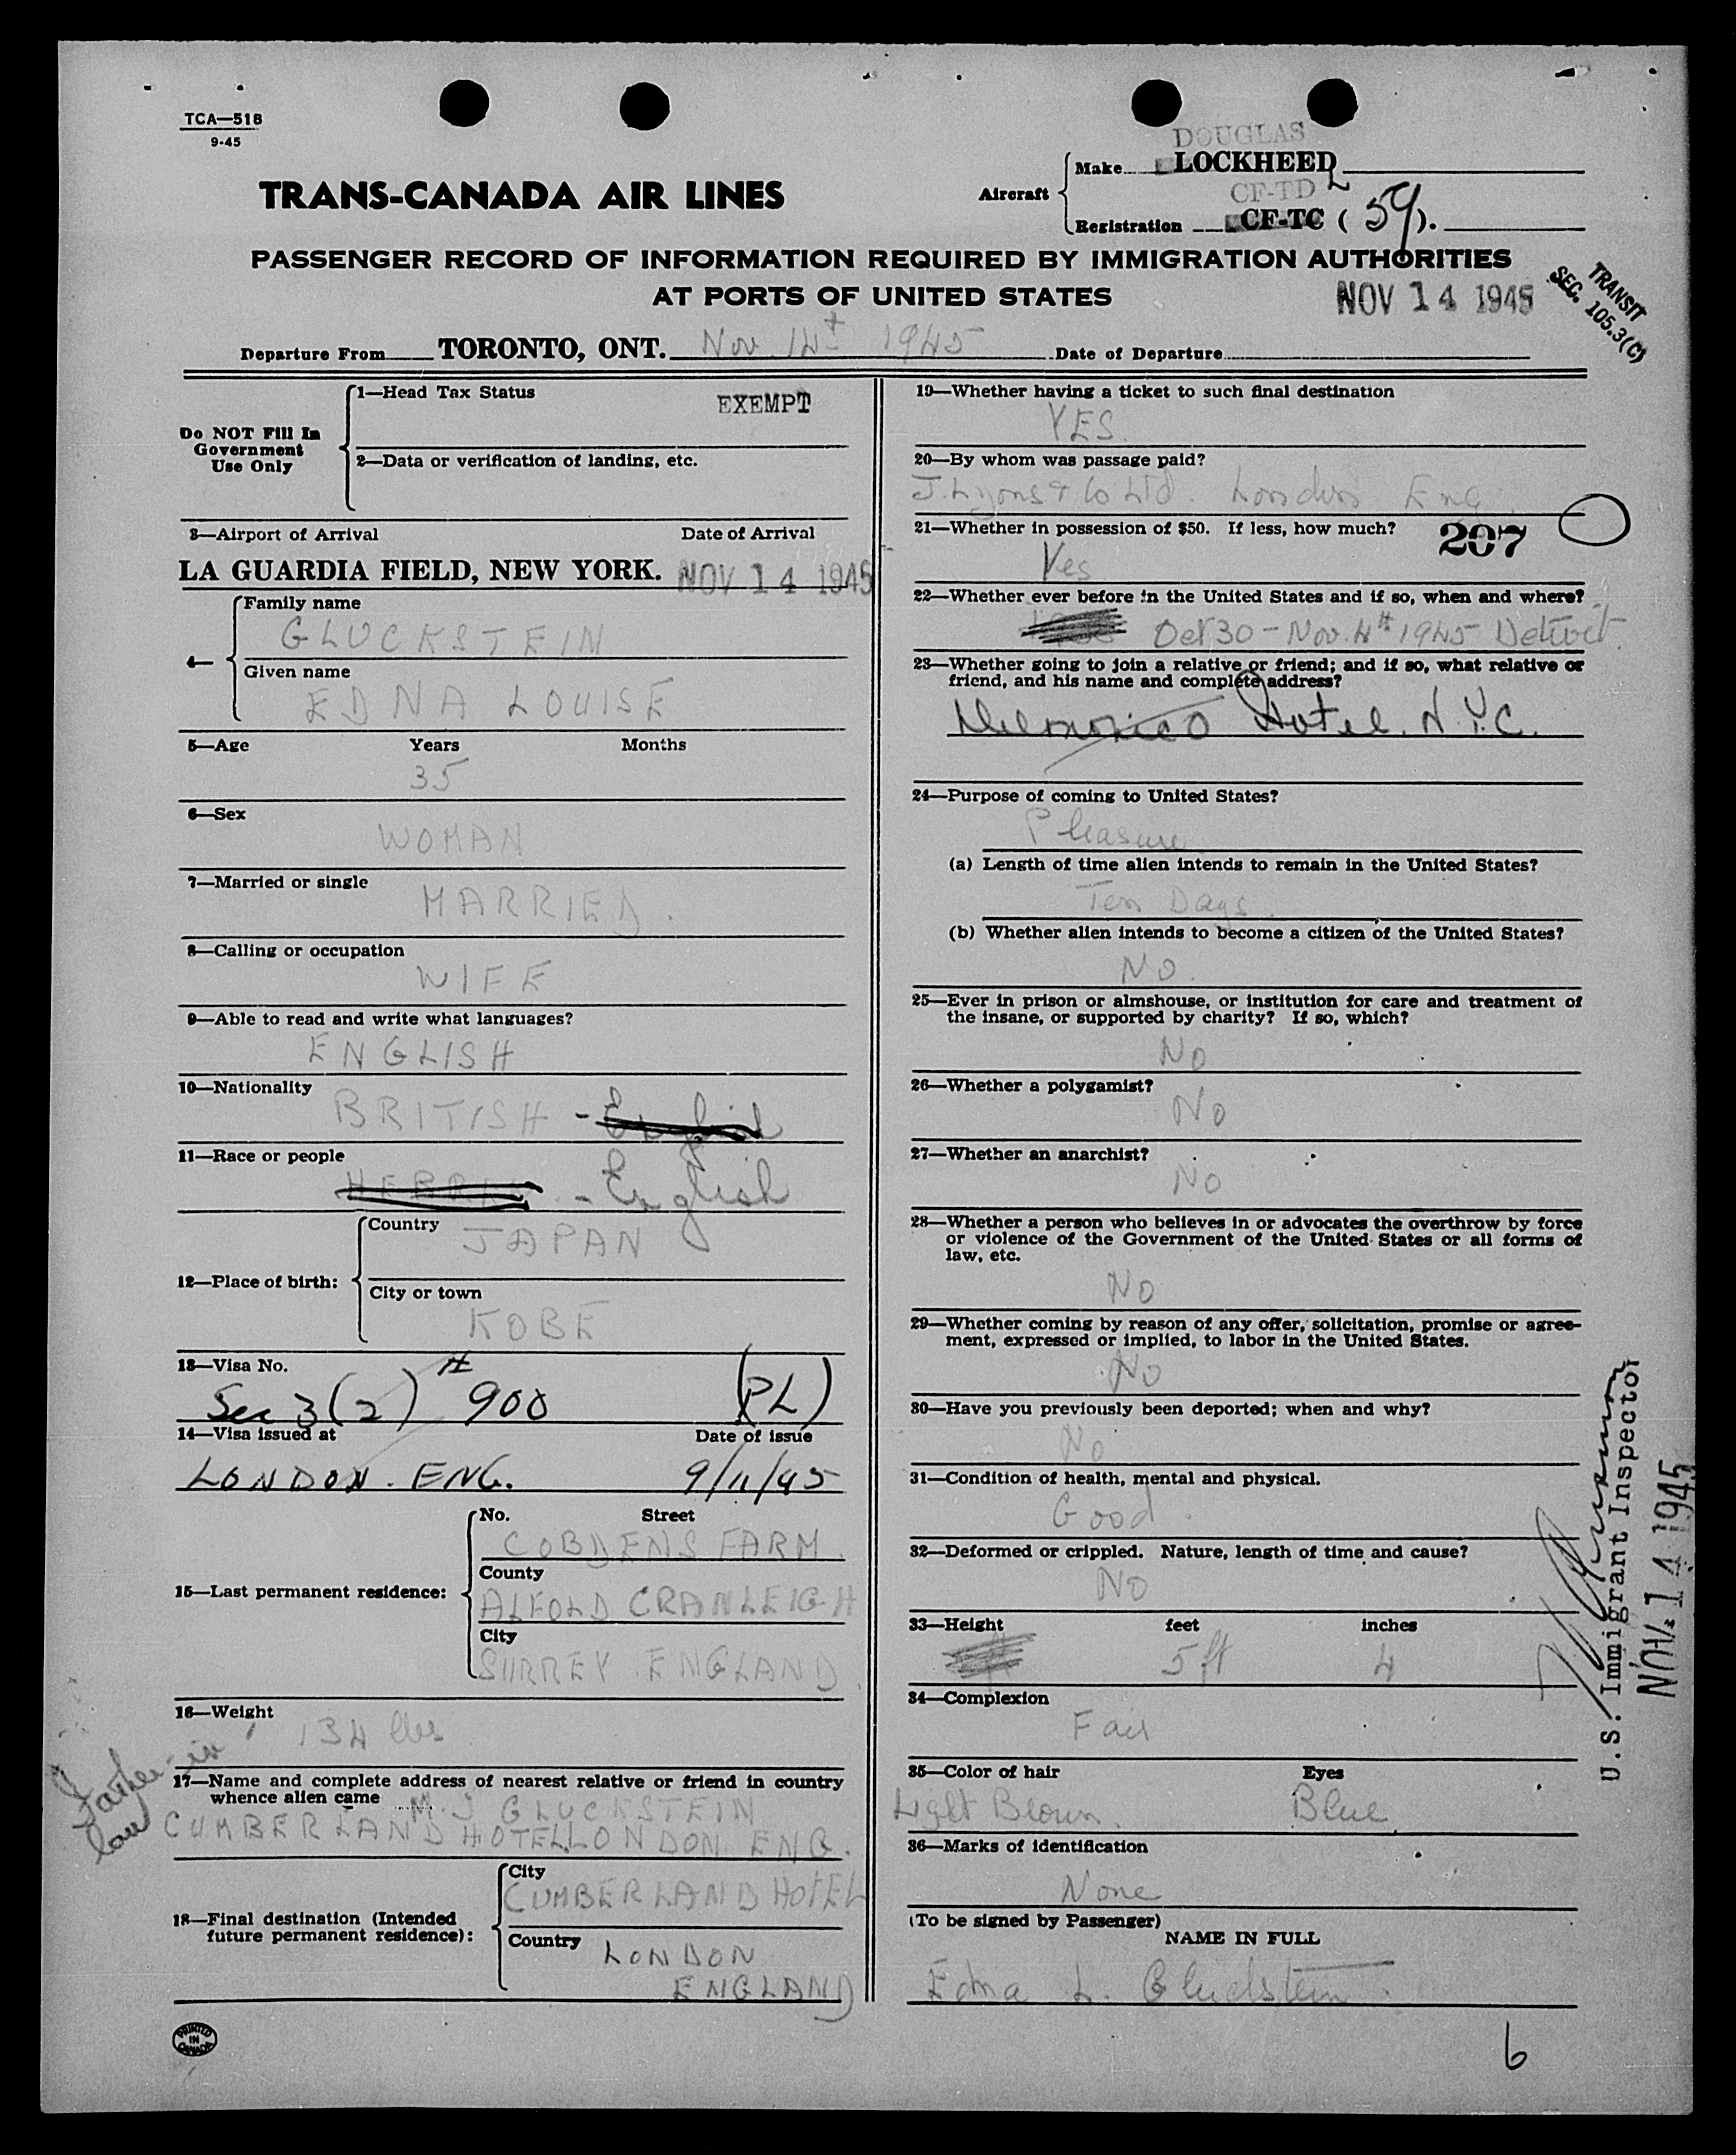 TCA—518
9-45
TRANS-CANADA AIR LINES
DOUGLAS
Aircraft
Make LOCKHEED
CF-TD
Registration CF-TC ( 59 ).
PASSENGER RECORD OF INFORMATION REQUIRED BY IMMIGRATION AUTHORITIES
AT PORTS OF UNITED STATES
NOV 14 1945
TRANSIT
SEC. 105.3(C)
Departure From TORONTO, ONT. Nov 14t 1945 Date of Departure
Do NOT Fill In
Government
Use Only
1—Head Tax Status EXEMPT
2—Data or verification of landing, etc.
3—Airport of Arrival Date of Arrival
LA GUARDIA FIELD, NEW YORK. NOV 14 1945
4—
Family name
GLUCKSTEIN
Given name
EDNA LOUISE
5—Age Years Months
35
6—Sex
WOMAN
7—Married or single
MARRIED.
8—Calling or occupation
WIFE
9—Able to read and write what languages?
ENGLISH
10—Nationality
BRITISH - English
11—Race or people
HEBREW - English
12—Place of birth:
Country
JAPAN
City or town
KOBE
13—Visa No.
Sec 3 (2) # 900 (PL)
14—Visa issued at Date of issue
LONDON. ENG. 9/11/45
15—Last permanent residence:
No. Street
COBDENS FARM.
County
ALFOLD CRANLEIGH
City
SURREY. ENGLAND.
16—Weight
134 lbs
Father-in
law
17—Name and complete address of nearest relative or friend in country
whence alien came
M. J GLUCKSTEIN
CUMBERLAND HOTEL LONDON ENG.
18—Final destination (Intended
future permanent residence):
City
CUMBERLAND HOTEL
Country
LONDON
ENGLAND
PRINTED
IN
CANADA
19—Whether having a ticket to such final destination
YES.
20—By whom was passage paid?
J. Lyons & Co Ltd. London Eng.
21—Whether in possession of $50. If less, how much? 207
Yes
22—Whether ever before in the United States and if so, when and where?
Oct 30 - Nov. 4th 1945 Detroit.
23—Whether going to join a relative or friend; and if so, what relative or
friend, and his name and complete address?
Delmonico Hotel. N.Y.C.
24—Purpose of coming to United States?
Pleasure.
(a) Length of time alien intends to remain in the United States?
Ten Days.
(b) Whether alien intends to become a citizen of the United States?
No.
25—Ever in prison or almshouse, or institution for care and treatment of
the insane, or supported by charity? If so, which?
No
26—Whether a polygamist?
No
27—Whether an anarchist?
No
28—Whether a person who believes in or advocates the overthrow by force
or violence of the Government of the United States or all forms of
law, etc.
No
29—Whether coming by reason of any offer, solicitation, promise or agree-
ment, expressed or implied, to labor in the United States.
No
30—Have you previously been deported; when and why?
No
31—Condition of health, mental and physical.
Good.
32—Deformed or crippled. Nature, length of time and cause?
No
33—Height feet inches
5 ft 4
34—Complexion
Fair
35—Color of hair Eyes
Light Brown. Blue.
36—Marks of identification
None
(To be signed by Passenger)
NAME IN FULL
Edna L. Gluckstein.
U.S. Immigrant Inspector
NOV 14 1945
6